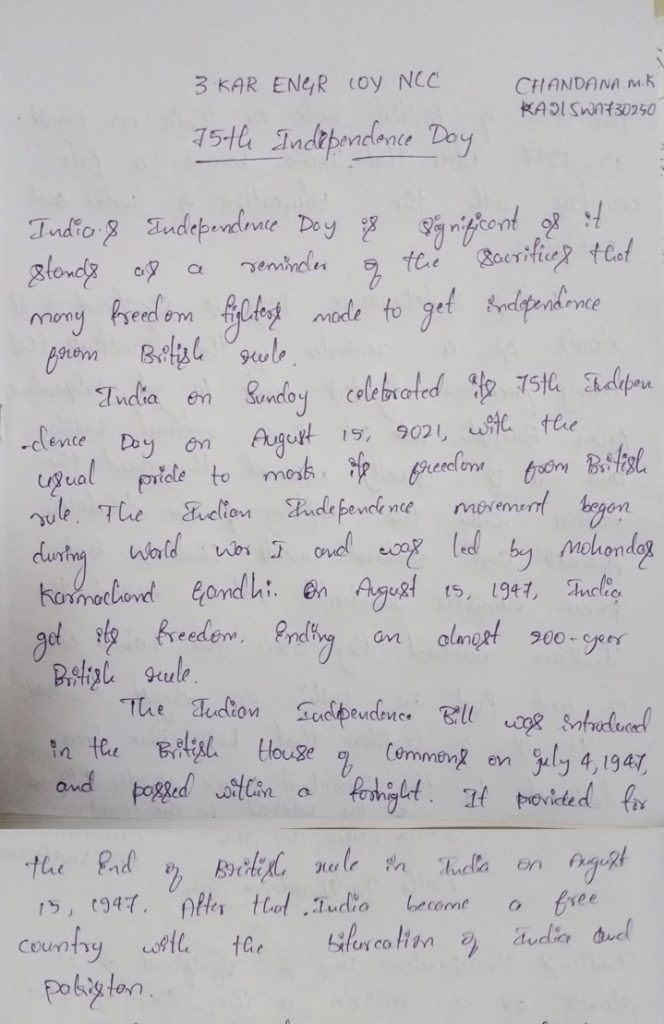 3 KAR ENGR COY NCC
CHANDANA.M.K
KA21SWA730250
75th Independence Day
India's Independence Day is significant as it
stands as a reminder of the sacrifices that
many freedom fighters made to get independence
from British rule.
India on Sunday celebrated its 75th Indepen
-dence Day on August 15, 2021, with the
usual pride to mark its freedom from British
rule. The Indian Independence movement began
during World War I and was led by Mohandas
Karmachand Gandhi. On August 15, 1947, India
got its freedom. Ending an almost 200-year
British rule.
The Indian Independence Bill was introduced
in the British House of Commons on july 4, 1947,
and passed within a fortnight. It provided for
the End of British rule in India on August
15, 1947. After that, India became a free
country with the bifurcation of India and
pakistan.